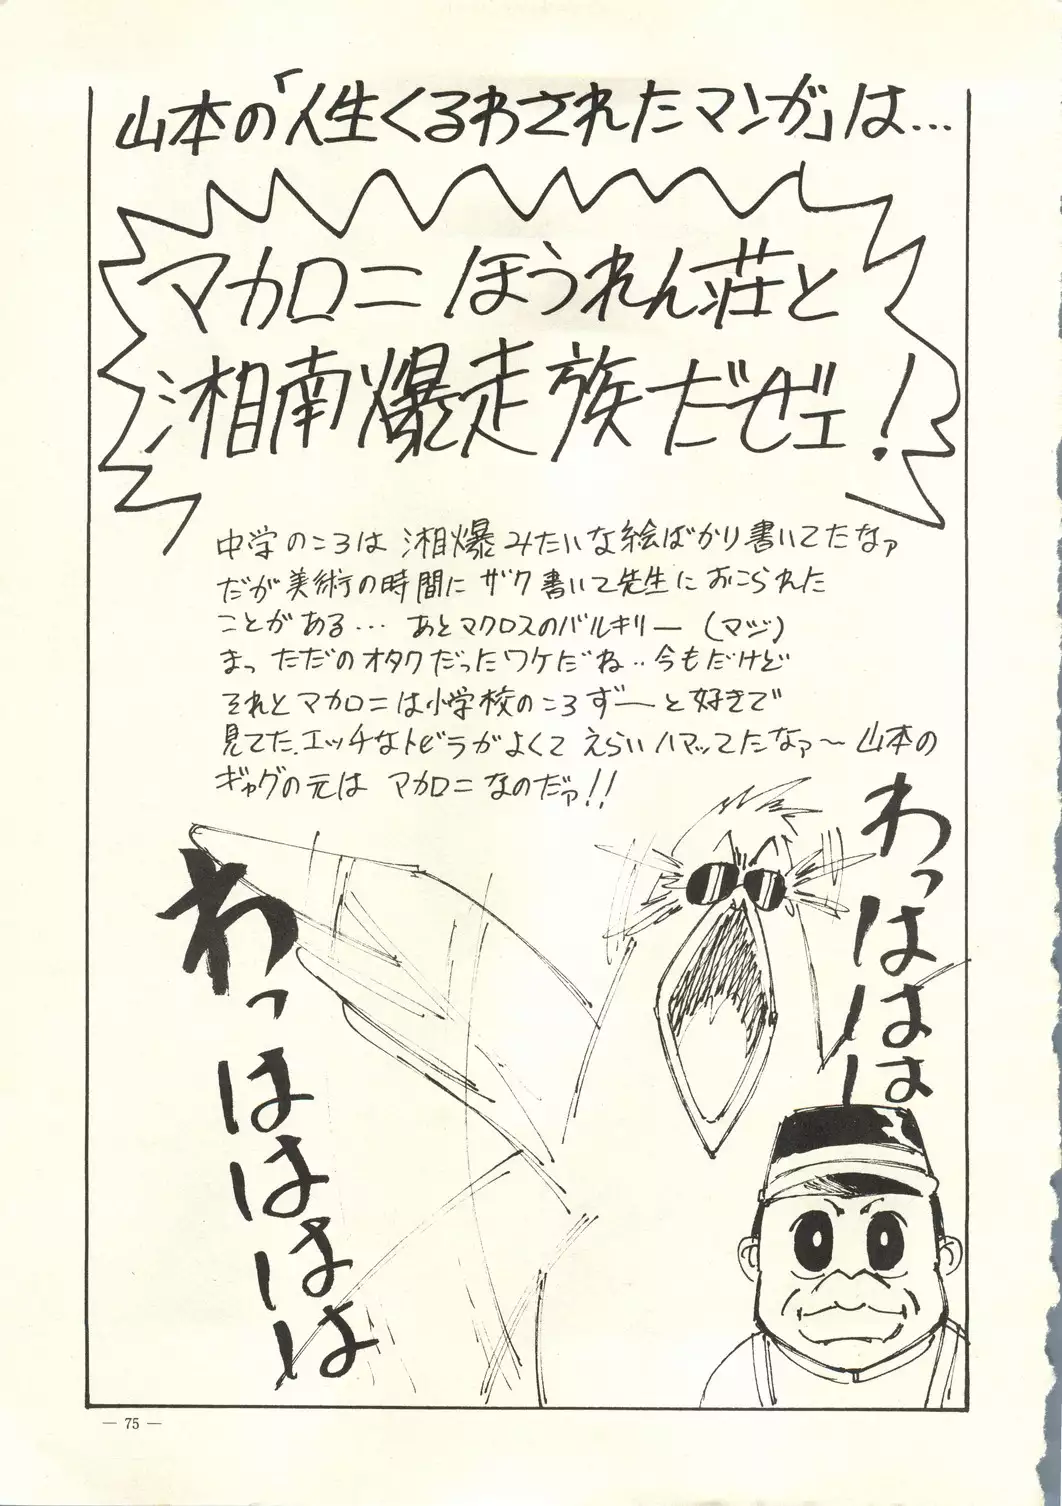 山本の「人生くるわされたマンガ」は…
マカロニほうれん荘と
湘南爆走族だぜェ！
中学のころは 湘爆みたいな絵ばかり書いてたなァ
だが美術の時間に ザク書いて先生におこられた
ことがある… あとマクロスのバルキリー（マジ）
まっ ただのオタクだったワケだね‥今もだけど
それとマカロニは小学校のころずーっと好きで
見てた.エッチなトビラがよくて えらいハマッてたなァ～ 山本の
ギャグの元は マカロニなのだァ!!
わっははは
わっはははは
— 75 —